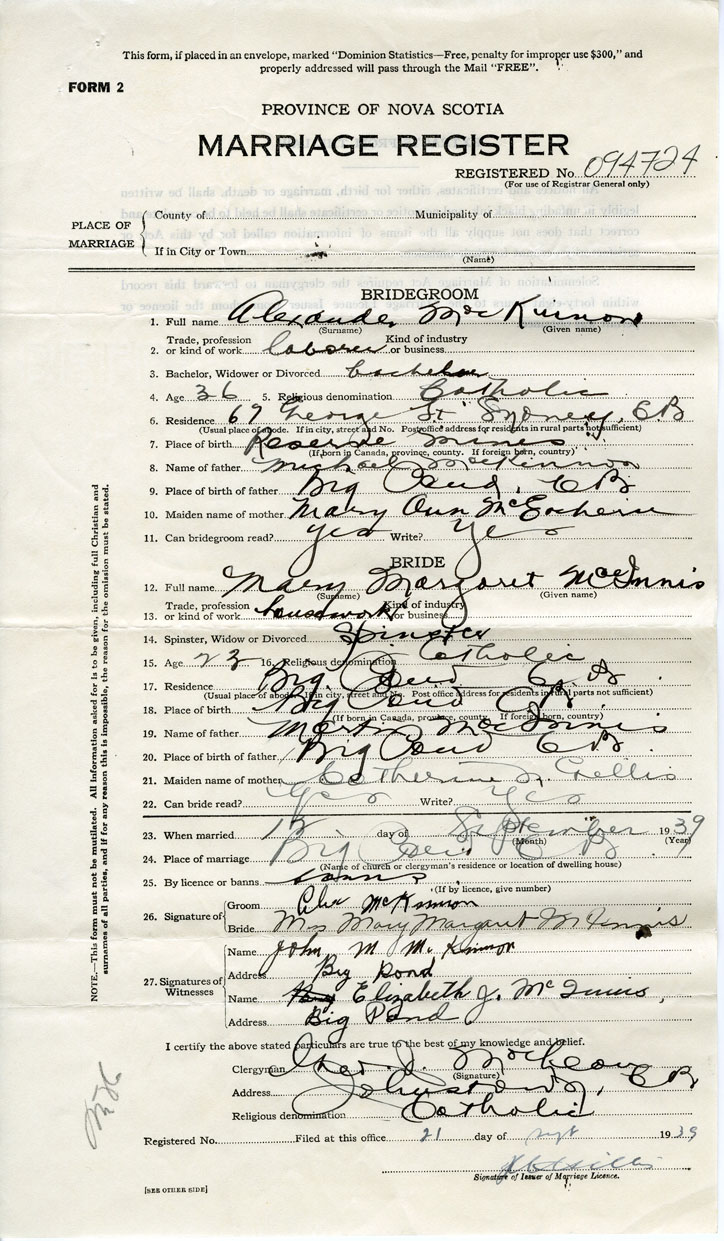 This form, if placed in an envelope, marked "Dominion Statistics—Free, penalty for improper use $300," and
properly addressed will pass through the Mail "FREE".
FORM 2
PROVINCE OF NOVA SCOTIA
MARRIAGE REGISTER
REGISTERED No. 094724
(For use of Registrar General only)
PLACE OF MARRIAGE
County of Municipality of
If in City or Town
(Name)
BRIDEGROOM
1. Full name Alexander MacKinnon
(Surname) (Given name)
Trade, profession Kind of industry
2. or kind of work laborer or business
3. Bachelor, Widower or Divorced bachelor
4. Age 36 5. Religious denomination Catholic
6. Residence 67 George St Sydney, C B
(Usual place of abode. If in city, street and No. Post office address for residents in rural parts not sufficient)
7. Place of birth Reserve Mines
(If born in Canada, province, county. If foreign born, country)
8. Name of father Michael MacKinnon
9. Place of birth of father Big Pond, C B
10. Maiden name of mother Mary Ann McEachern
11. Can bridegroom read? yes Write? Yes
BRIDE
12. Full name Mary Margaret McInnis
(Surname) (Given name)
Trade, profession Kind of industry
13. or kind of work housework or business
14. Spinster, Widow or Divorced Spinster
15. Age 23 16. Religious denomination Catholic
17. Residence Big Pond C B
(Usual place of abode. If in city, street and No. Post office address for residents in rural parts not sufficient)
18. Place of birth Big Pond C B
(If born in Canada, province, county. If foreign born, country)
19. Name of father MacInnis
20. Place of birth of father Big Pond C B
21. Maiden name of mother Catherine Gillis
22. Can bride read? Yes Write? Yes
23. When married 12 day of September 1939
(Month) (Year)
24. Place of marriage Big Pond C B
(Name of church or clergyman's residence or location of dwelling house)
25. By licence or banns banns
(If by licence, give number)
26. Signature of
Groom Alex McKinnon
Bride Mrs Mary Margaret McInnis
27. Signatures of Witnesses
Name John M McKinnon
Address Big Pond
Name Elizabeth J. McInnis,
Address Big Pond
I certify the above stated particulars are true to the best of my knowledge and belief.
Clergyman
(Signature)
Address Johnstown, C B
Religious denomination Catholic
Registered No. Filed at this office 21 day of Sept 1939
Signature of Issuer of Marriage Licence.
[SEE OTHER SIDE]
NOTE.—This form must not be mutilated. All information asked for is to be given, including full Christian and
surnames of all parties, and if for any reason this is impossible, the reason for the omission must be stated.